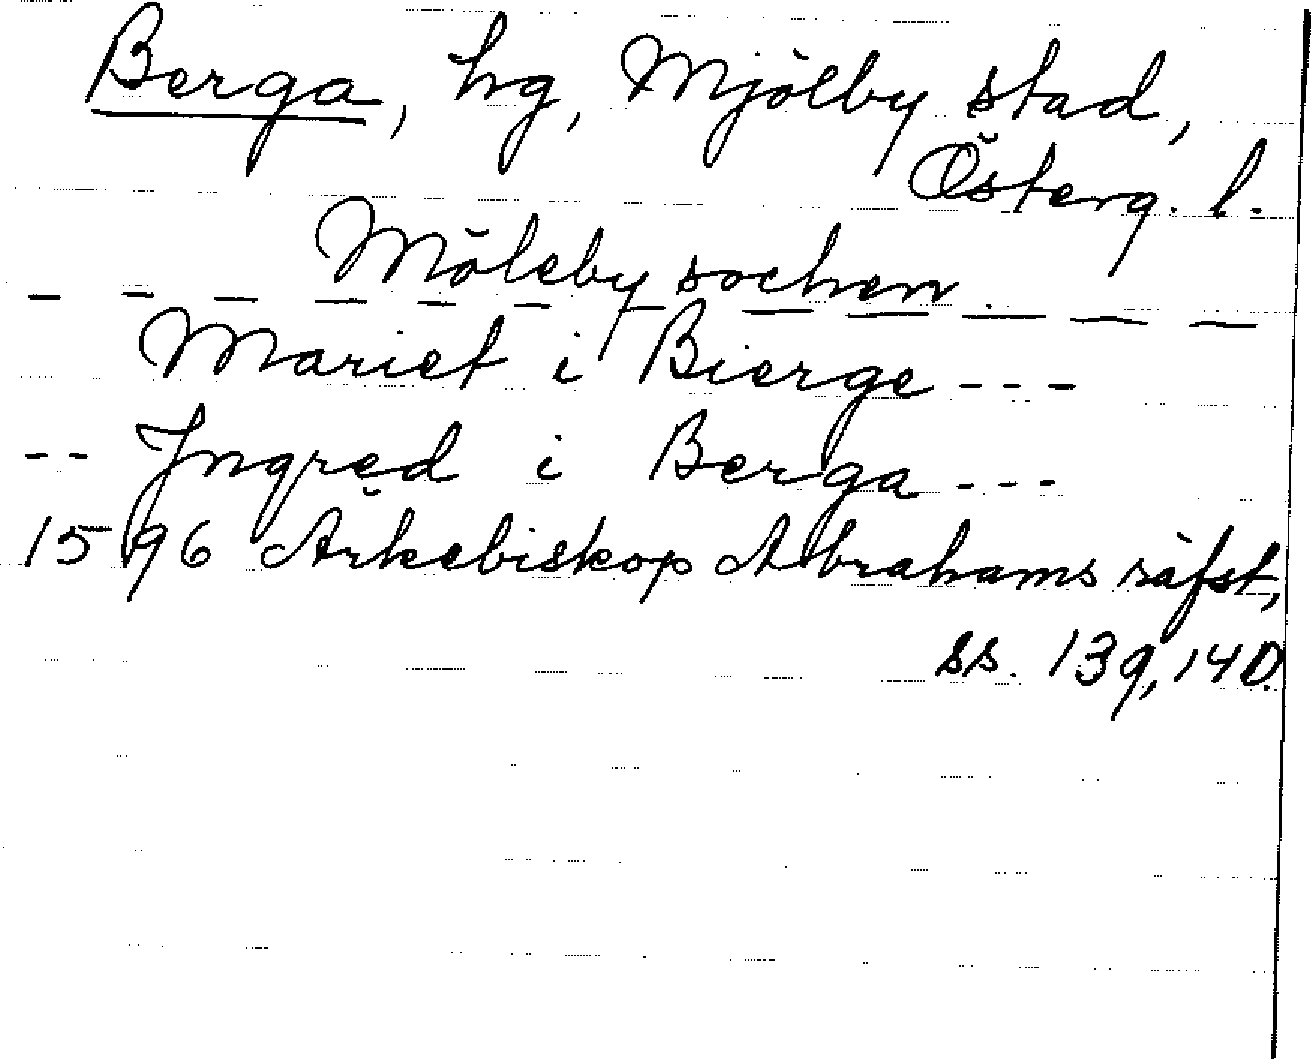 Berga, hg, Mjölby stad,
Österg. l.
Möleby sochen.
— — — — — — — — — — — — —
Mariet i Bierge - - -
- - Jngred i Berga - - -
1596 Ärkebiskop Abrahams räfst,
ss. 139, 140.